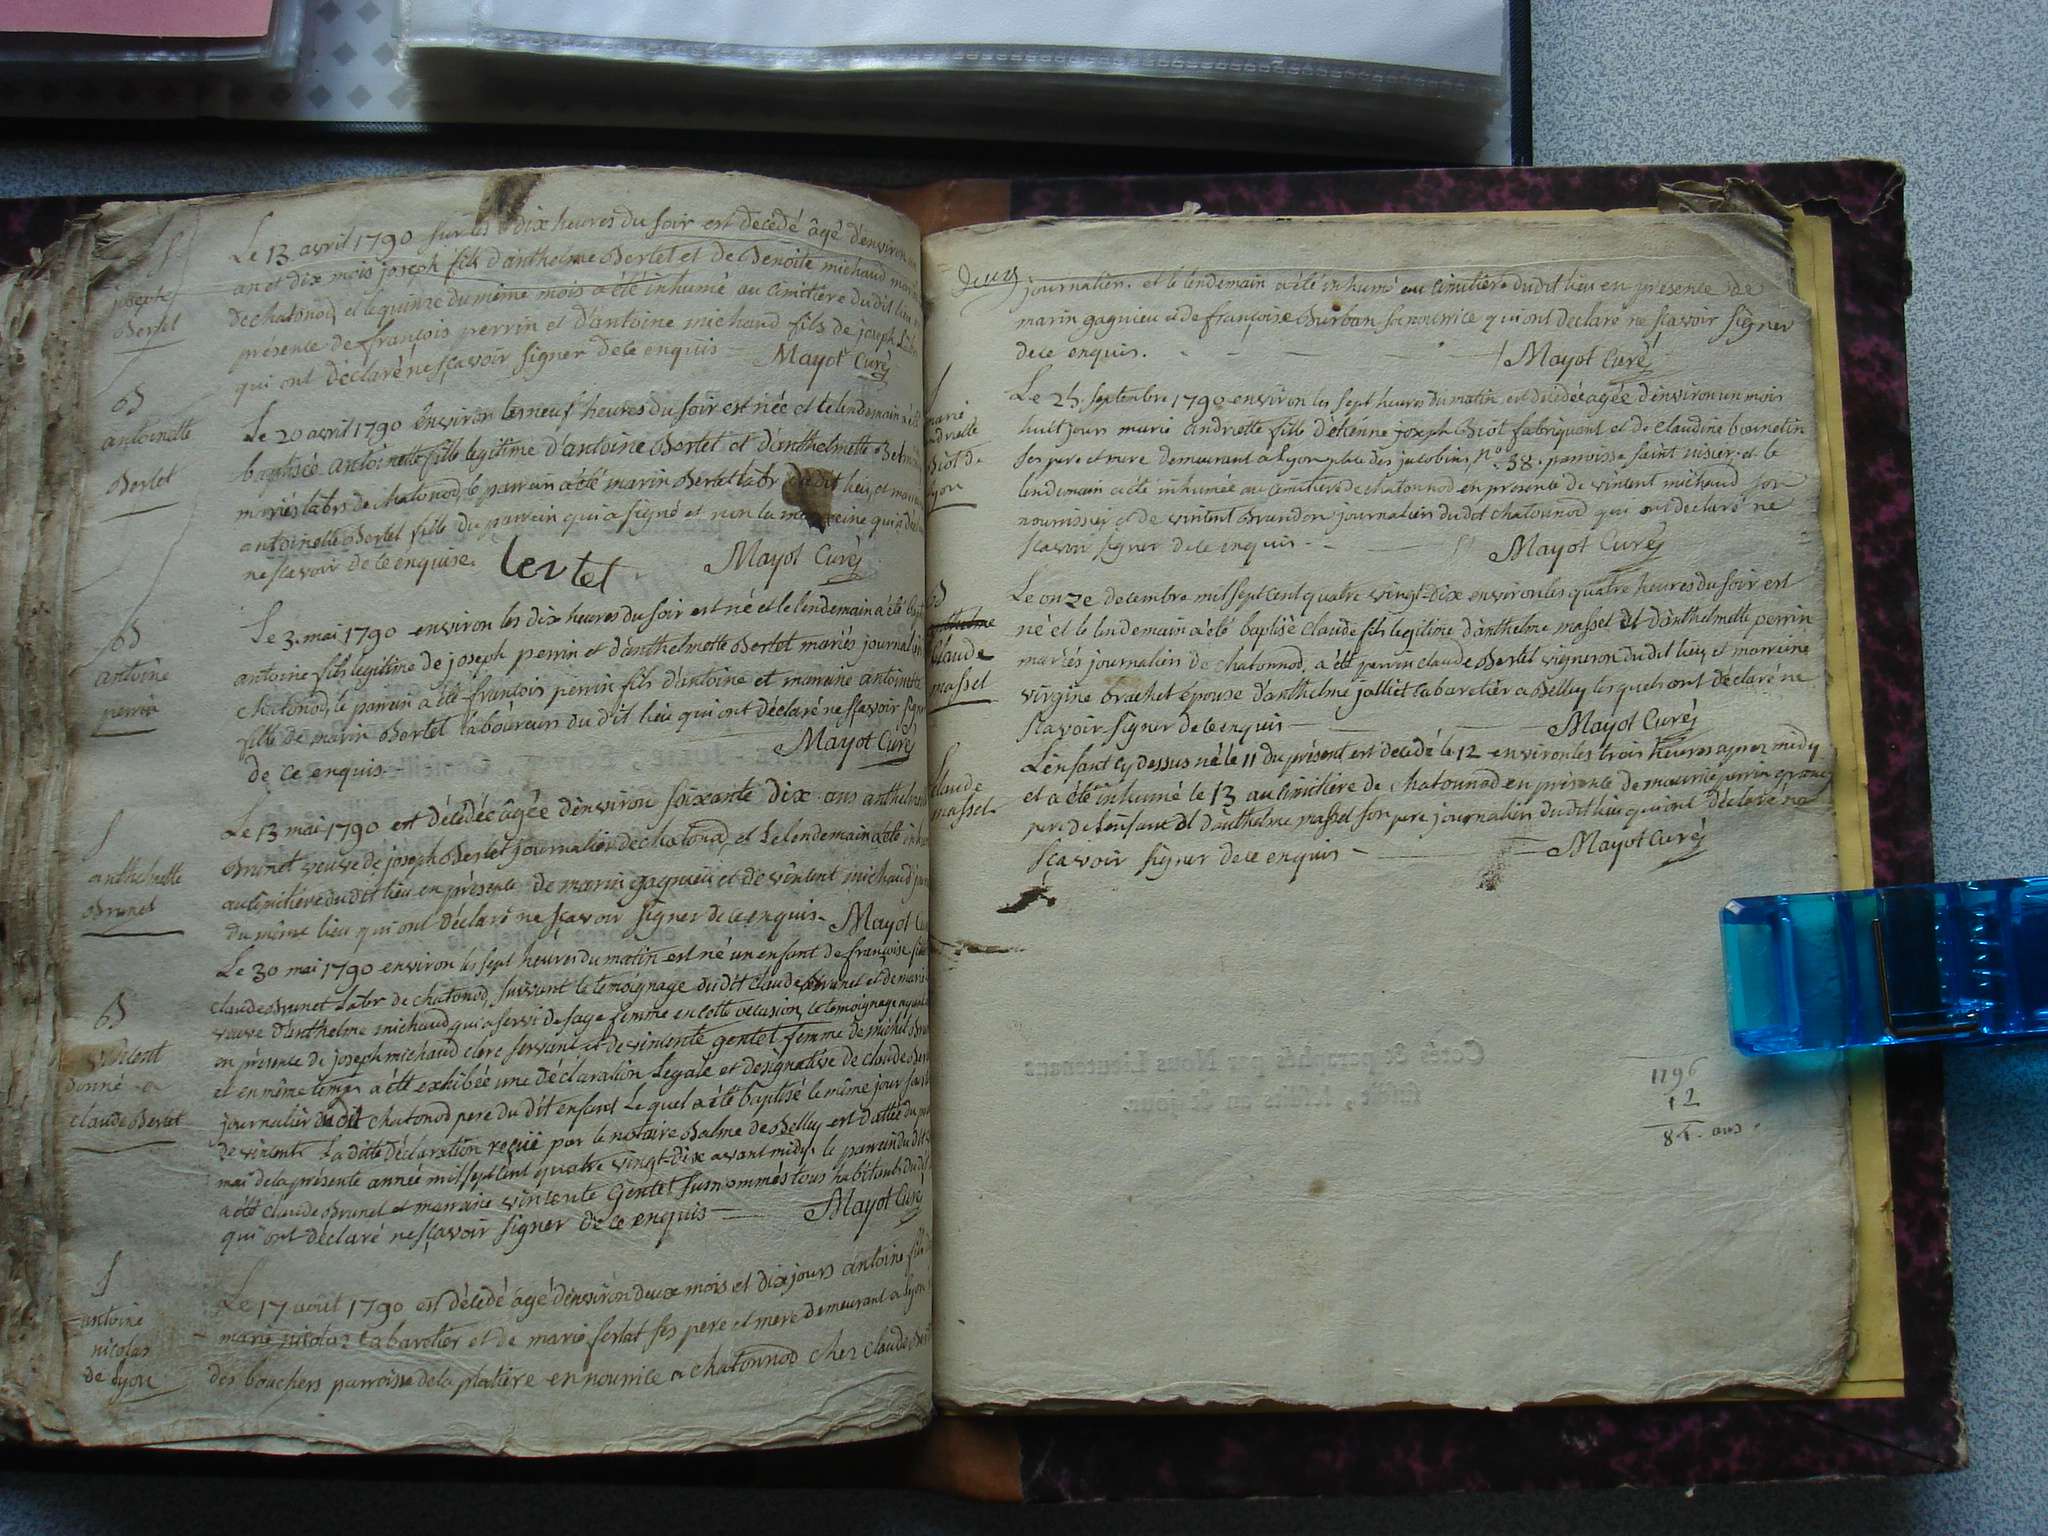 S
joseph
Bertet
Le 13 avril 1790 sur les dix heures du soir est decedé âgé d'environ un
an et dix mois joseph fils d'anthelme Bertet et de Benoite michaud mariés
de chatonod, et le quinze du même mois a été inhumé au cimitière du dit lieu en
présence de françois perrin et d'antoine michaud fils de joseph
qui ont déclaré ne sçavoir signer de ce enquis Mayot Curé
B
antoinette
Bertet
Le 20 avril 1790 environ les neuf heures du soir est née et le lendemain a été
baptisée antoinette fille legitime d'antoine Bertet et d'anthelmette
mariés labrs de chatonod, le parrain a été marin Bertet labr du dit lieu, et
antoinette Bertet fille du parrain qui a signé et non la marreine qui a
ne sçavoir de ce enquise. bertet Mayot Curé
B
antoine
perrin
Le 3 mai 1790 environ les dix heures du soir est né et le lendemain a été
antoine fils legitime de joseph perrin et d'anthelmette Bertet mariés journaliers
chatonod, le parrain a été françois perrin fils d'antoine et marraine antoinette
fille de marin Bertet laboureurs du dit lieu qui ont déclaré ne sçavoir signer
de ce enquis. Mayot Curé
S
anthelmette
Brunet
Le 13 mai 1790 est décédée âgée d'environ soixante dix ans anthelmette
Brunet veuve de joseph Bertet journalier de chatonod, et le lendemain a été
au cimitière du dit lieu en présence de marin gagnieu et de vincent michaud
du même lieu qui ont déclaré ne sçavoir signer de ce enquis. Mayot
B
vincent
donné a
claude Bertet
Le 30 mai 1790 environ les sept heures du matin est né un enfant de françoise fille
claude Brunet labr de chatonod, suivant le témoignage du dit claude Brunet et de marie
veuve d'anthelme michaud qui a servi de sage femme en cette occasion, le témoignage ayant
en présence de joseph michaud clerc servant et de vincente gentet femme de michel
et en même temps a été exhibée une déclaration légale et designative de claude
journalier du dit chatonod pere du dit enfant lequel a été baptisé le même jour sous
de vincent. La ditte déclaration reçuë par le notaire Balme de Belley est dattée du
mai de la présente année mil sept cent quatre vingt-dix avant midy. le parrain du dit
a été claude Brunet et marraine vincente Gentet susnommés tous habitants du dit
qui ont déclaré ne sçavoir signer de ce enquis Mayot Curé
S
antoine
nicolas
de lyon
Le 17 août 1790 est décédé agé d'environ deux mois et dix jours antoine fils
marie nicolas cabaretier et de marie ferlat ses pere et mere demeurant a lyon
des bouchers parroisse de la platière en nourrice a chatonnod chez claude
journalier. et le lendemain a été inhumé au cimitière du dit lieu en présence de
marin gagnieu et de françoise Burban sa nourrice qui ont déclaré ne sçavoir signer
de ce enquis. Mayot Curé
marie
andriette
Biot de
lyon
Le 25 septembre 1790 environ les sept heures du matin, est décédée agée d'environ un mois
huit jours marie andriette fille d'étienne joseph Biot fabriquant et de claudine
ses pere et mere demeurant a lyon place des jacobins, n° 38. parroisse saint nisier, et le
lendemain a été inhumée au cimitière de chatonnod en presence de vincent michaud son
nourrissier et de vincent Brandon journaliers du dit chatonnod qui ont declaré ne
sçavoir signer de ce enquis. Mayot Curé
B
Claude
massel
Le onze decembre mil sept cent quatre vingt-dix environ les quatre heures du soir est
né et le lendemain a été baptisé claude fils legitime d'anthelme massel et d'anthelmette perrin
mariés journaliers de chatonnod, a été parrain claude Bertet vigneron du dit lieu, et marreine
virgine brachet épouse d'anthelme jalliet cabaretier a Belley lesquels ont déclaré ne
sçavoir signer de ce enquis Mayot Curé
S
claude
massel
L'enfant cy dessus né le 11 du présent, est décédé le 12 environ les trois heures apres midy
et a été inhumé le 13 au cimitière de chatonnod en présence de maurice perrin grand
pere de l'enfant et d'anthelme massel son pere journaliers du dit lieu qui ont déclaré ne
sçavoir signer de ce enquis Mayot Curé
1796
12
84. ans.